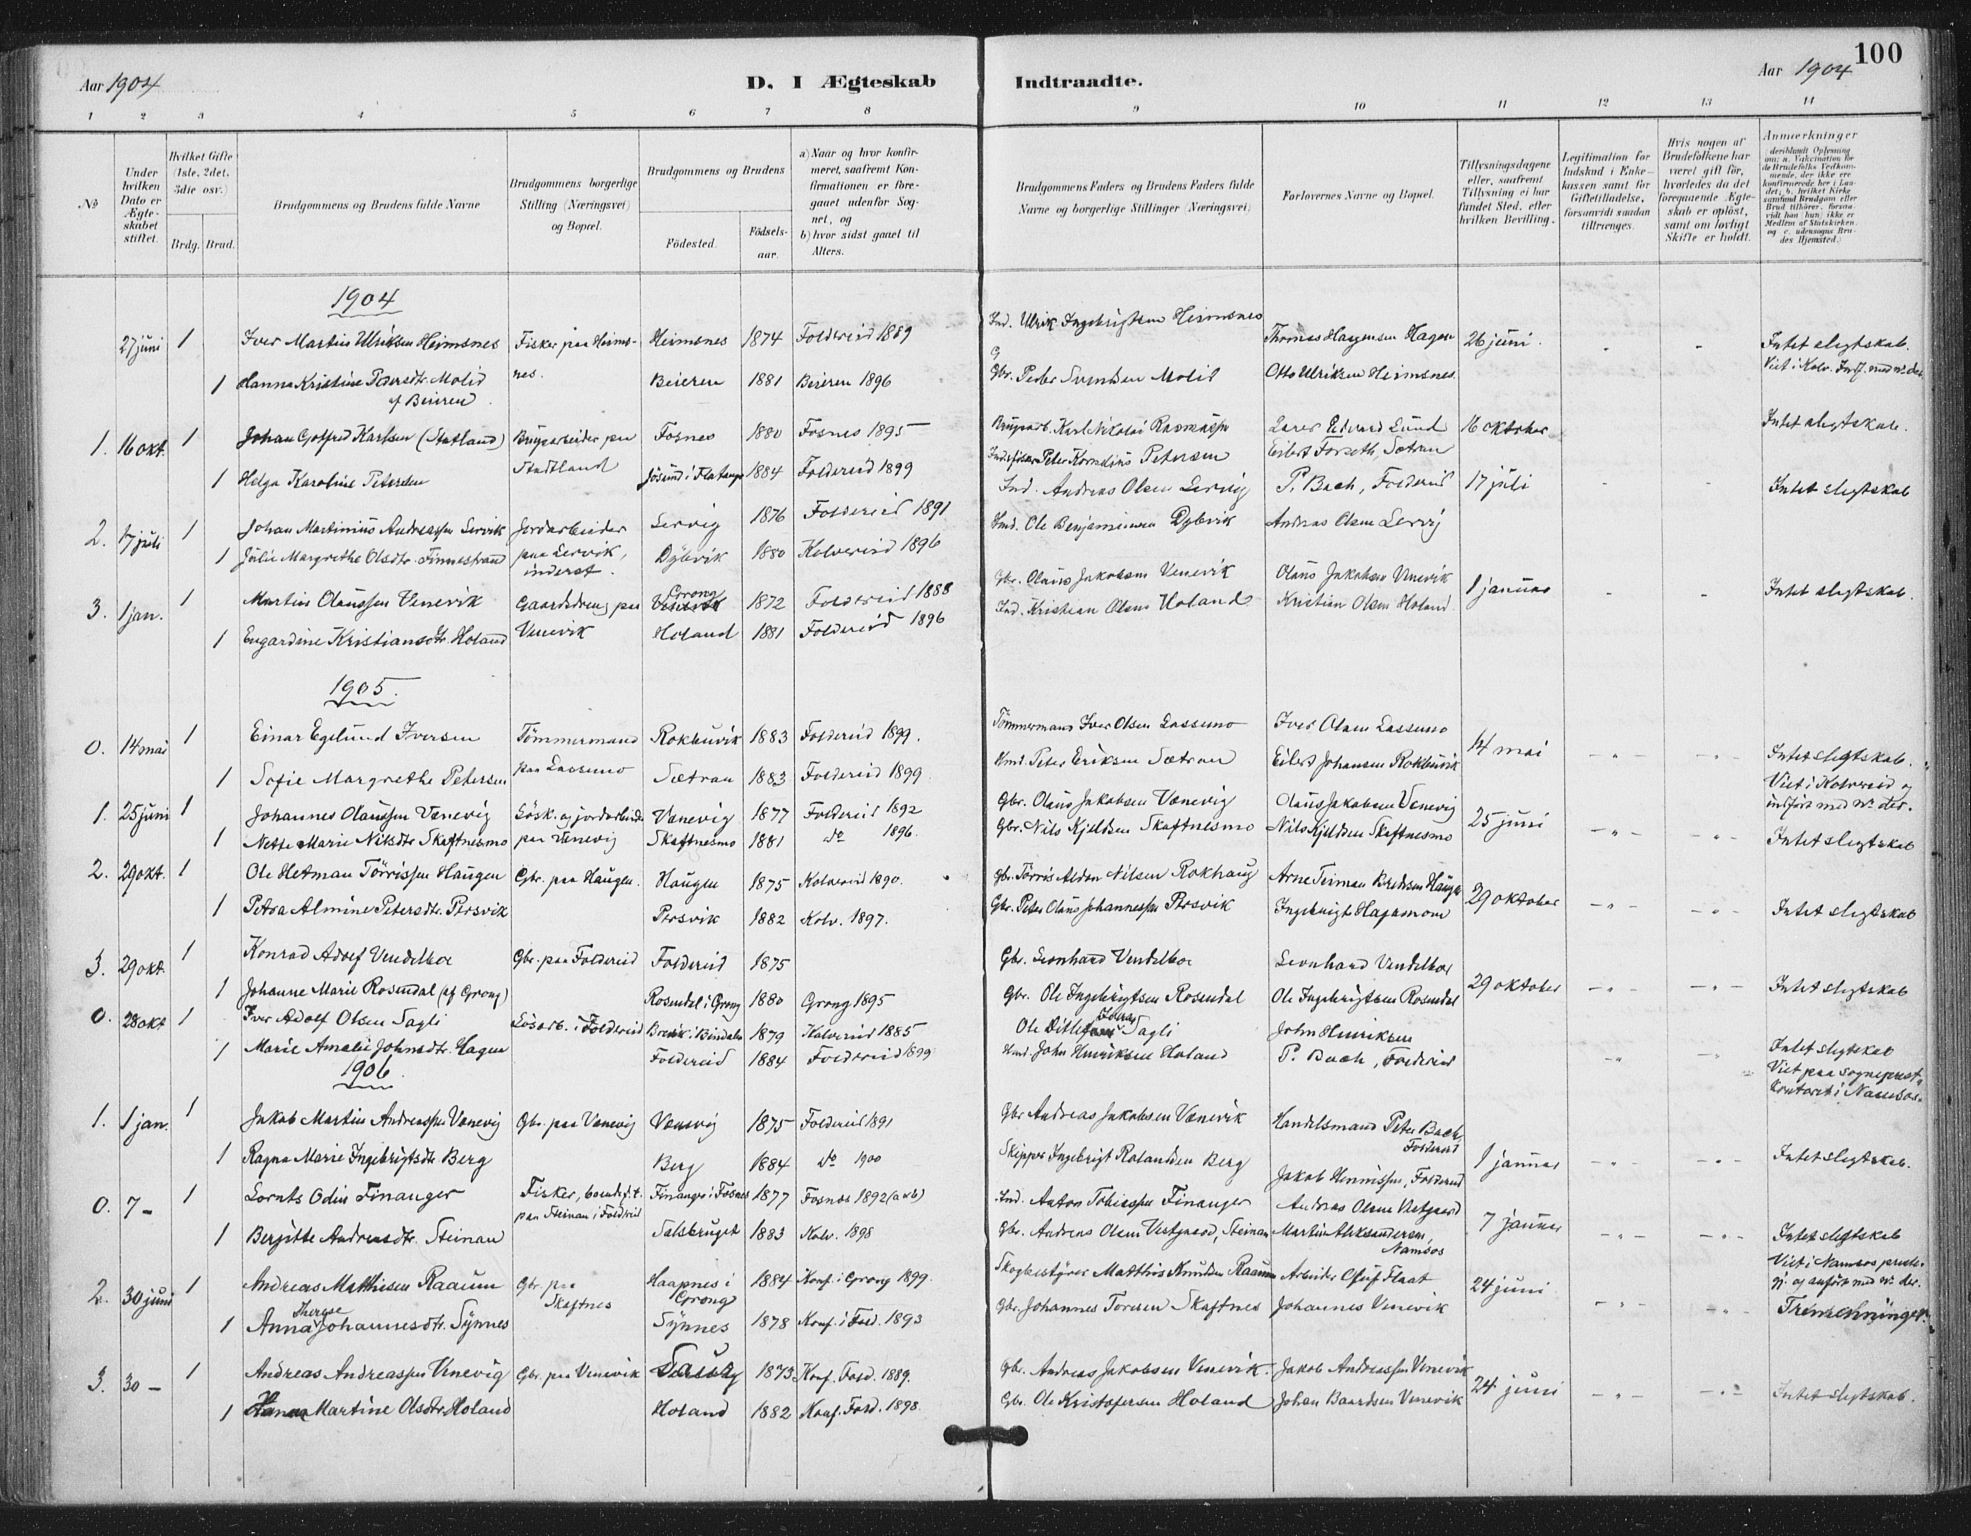 Aar 1904
D. I Ægteskab Indtraadte.
Aar 1904
100
1 2 3 4 5 6 7 8 9 10 11 12 13 14
No
Under hvilken Dato er Ægteskabet stiftet.
Hvilket Gifte (1ste, 2det, 3die osv.)
Brdg. Brud.
Brudgommens og Brudens fulde Navne
Brudgommens borgerlige Stilling (Næringsvei) og Bopæl.
Brudgommens og Brudens
Fødested.
Fødselsaar.
a) Naar og hvor konfirmeret, saafremt Konfirmationen er foregaaet udenfor Sognet, og
b) hvor sidst gaaet til Alters.
Brudgommens Faders og Brudens Faders fulde Navne og borgerlige Stillinger (Næringsvei)
Forlovernes Navne og Bopæl.
Tillysningsdagene eller, saafremt Tillysning ei har fundet Sted, efter hvilken Bevilling.
Legitimation for Indskud i Enkekassen samt for Giftetilladelse, forsaavidt saadan tiltrænges.
Hvis nogen af Brudefolkene har været gift før, hvorledes da det foregaaende Ægteskab er opløst, samt om lovligt Skifte er holdt.
Anmærkninger
1904
27 juni 1 Iver Martin Ulriksen Heimsnes Fisker paa Heimsnes. Heimsnes 1874 Foldereid 1889 Ind. Ulrik Ingebrigtsen Heimsnes Thomas Hagensen Hagen 26 juni. Intet slegtskab.
1 Hanna Kristine Pedersdtr. Molid af Beieren Beieren 1881 Beieren 1896 Gbr. Peder Svendsen Molid Otto Ulriksen Heimsnes Viet i Kolv. Indf. med nr. der
1. 16 okt. 1 Johan Gotfred Karlsen (Statland) Brugarbeider paa Statland Fosnes 1880 Fosnes 1895 Brugarb. Karl Nikolai Rasmussen Lærer Edvard Lund 16 oktober Intet slegtskab.
1 Helga Karoline Petersen Jøsund i Flatanger 1884 Foldereid 1899 Peter Kornelius Petersen Eilert Forseth, Sætran
2. 17 juli 1 Johan Martinius Andreassen Lervik Jordarbeider paa Lervik, inderst. Lervig 1876 Foldereid 1891 Ind. Andreas Olsen Lervig P. Bach, Foldereid 17 juli Intet slegtskab
1 Julie Margrethe Olsdtr. Finnestrand Dybvik 1880 Kolvereid 1896 Ind. Ole Benjaminsen Dybvik Andreas Olsen Lervig
3. 1 jan. 1 Martin Olaussen Venevik Gaardsdreng paa Venevik Grong 1872 Foldereid 1888 Gbr. Olaus Jakobsen Venevik Olaus Jakobsen Venevik 1 januar Intet slegtskab.
1 Engardine Kristiansdtr. Holand Holand 1881 Foldereid 1896 Ind. Kristian Olsen Holand Kristian Olsen Holand
1905.
0. 14 mai 1 Einar Egelund Iversen Tømmermand paa Lassemo Rokhuvik 1883 Foldereid 1899. Tømmermand Iver Olsen Lassemo Iver Olsen Lassemo 14 mai Intet slegtskab.
1 Sofie Margrethe Petersen Sætran 1883 Foldereid 1899. Peter Eriksen Sætran Eilert Johansen Viet i Kolvereid og indført med nr. der.
1. 25 juni 1 Johannes Olaussen Venevig paa Venevig Venevig 1877 Foldereid 1892 Gbr. Olaus Jakobsen Venevig Olaus Jakobsen Venevig 25 juni Intet slegtskab
1 Nette Marie Nilsdtr. Skaftnesmo Skaftnesmo 1881 do 1896. Gbr. Nils Kjeldsen Skaftnesmo Nils Kjeldsen Skaftnesmo
2. 29 okt. 1 Ole Hetman Tørrissen Haugen Gbr. paa Haugen. Haugen 1875 Kolvereid 1890. Gbr. Tørris Aldon Nilsen Rokhaug 29 oktober Intet slegtskab
1 Petra Almine Petersdtr. Persvik Persvik 1882 Kolv. 1897. Gbr. Peter Olaus Johannessen Persvik Ingebrigt Hagamoen
3. 29 okt. 1 Konrad Adolf Vendelboe Gbr. paa Foldereid Foldereid 1875 Gbr. Leonhard Vendelboe Leonhard Vendelboe 29 oktober Intet slegtskab
1 Johanne Marie Rosendal (af Grong) Rosendal i Grong 1880 Grong 1895 Gbr. Ole Ingebrigtsen Rosendal Ole Ingebrigtsen Rosendal
0. 28 okt 1 Iver Adolf Olsen Sagli Løsarb. i Foldereid 1879 Kolvereid 1885 Sagli John Henriksen Intet slegtskab
1 Marie Amalie Johnsdtr. Hagen Foldereid 1884 Foldereid 1899 John Henriksen Holand P. Bach, Foldereid Viet paa sogneprestkontoret i Namsos.
1906.
1. 1 jan. 1 Jakob Martin Andreassen Venevig Gbr. paa Venevig Venevig 1875 Foldereid 1891 Gbr Andreas Jakobsen Venevik Handelsmand Peter Bach, Foldereid 1 januar Intet slegtskab.
1 Ragna Marie Ingebrigtsdtr. Berg Berg 1884 do 1900 Skipper Ingebrigt Rolandsen Berg Jakob Henrissen, Foldereid
0. 7 – 1 Lornts Odin Finanger Fisker, paa Steinan i Foldereid Finanger i Fosnes 1877 Fosnes 1892 (a & b) Ind. Anton Tobiassen Finanger Andreas Olsen Vestgaard 7 januar Intet slegtskab
1 Bergitte Andreasdtr. Steinan Salsbruget 1883 Kolv. 1898 Gbr. Andreas Olsen Vestgaard, Steinan Martin Aleksandersen, Namsos Viet i Namsos og anført med nr. der.
2. 30 juni 1 Andreas Matthisen Raaum Gbr. paa Skaftnes Haapnes i Grong 1884 Konf. i Grong 1899. Skogbestyrer Matthis Knudsen Raaum Arbeider Oluf Flaat 24 juni Tremenninger.
1 Anna Therese Johannesdtr. Synnes Synnes 1878 Konf. i Fold. 1893 Gbr. Johannes Toresen Skaftnes Johannes Venevik
3. 30 – 1 Andreas Andreassen Venevig Gbr. paa Venevik 1873 Konf. Fold. 1889. Gbr. Andreas Jakobsen Venevik. Jakob Andreassen Venevik 24 juni Intet slegtskab.
1 Martine Olsdtr. Holand Holand 1882 Konf. Fold. 1898. Gbr. Ole Kristofersen Holand Johan Baardsen Venevik